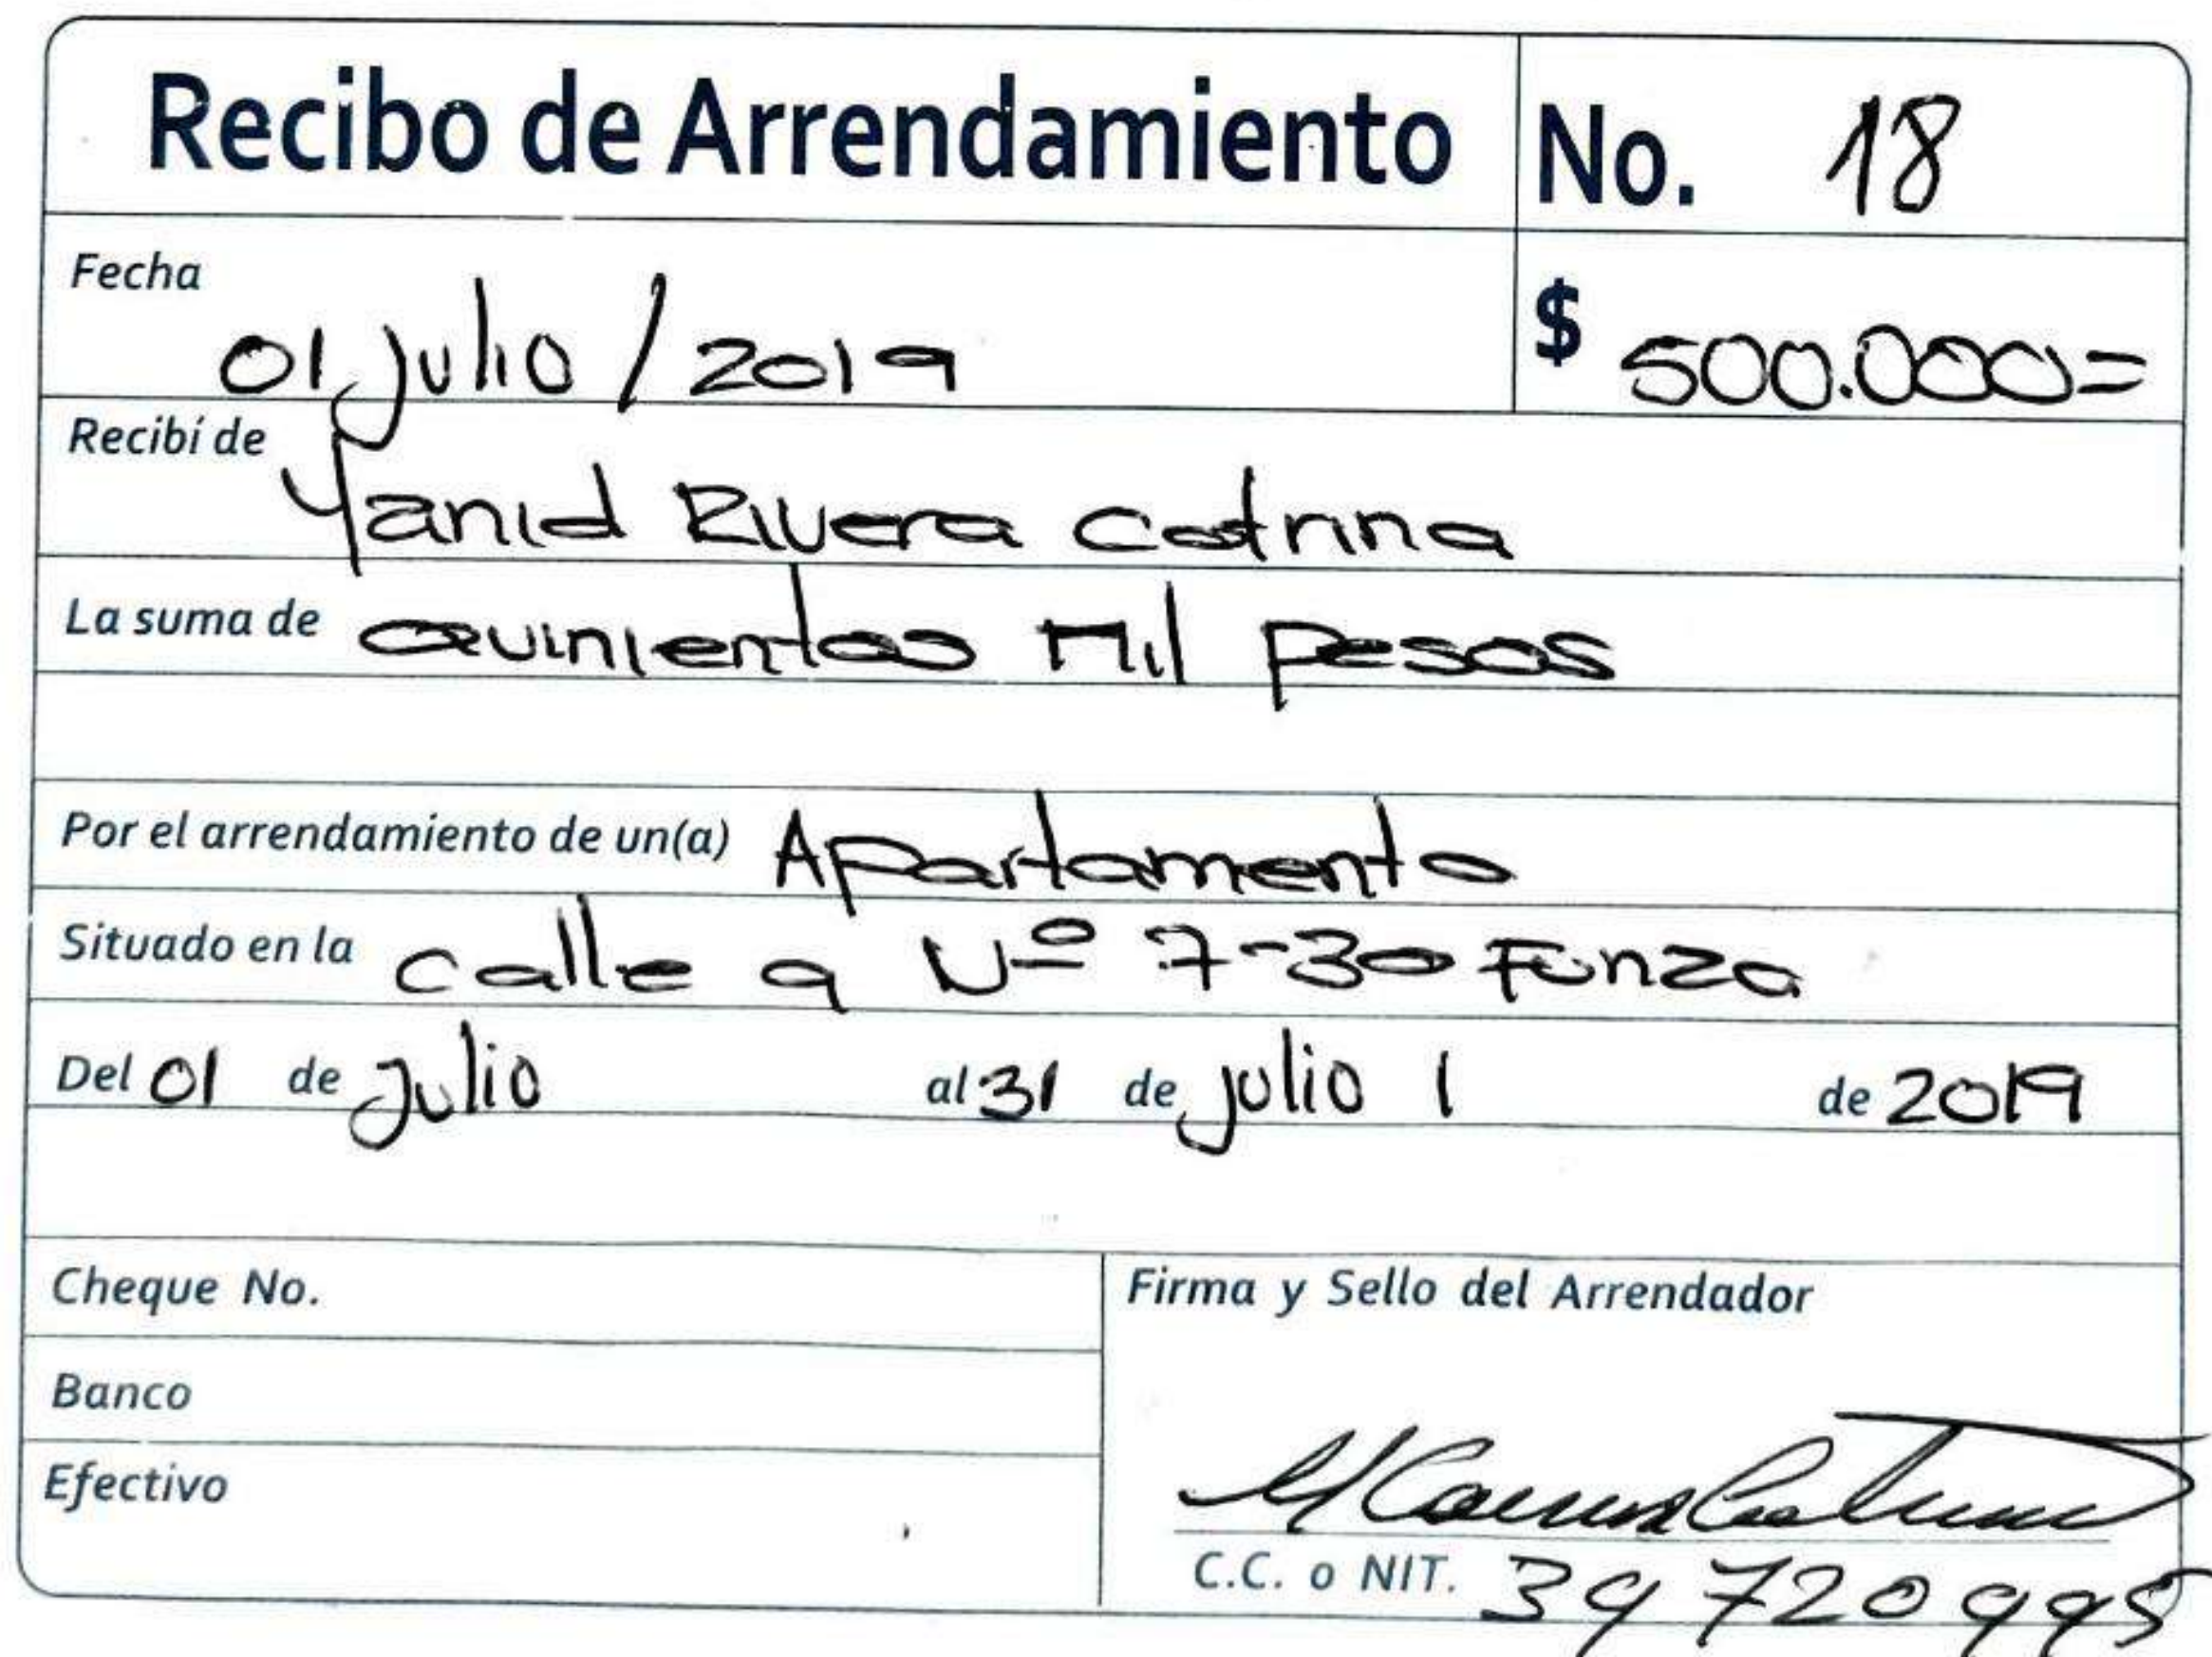 Recibo de Arrendamiento No. 18
Fecha 01 Julio / 2019 $ 500.000=
Recibí de Yanid Rivera Cotrina
La suma de Quinientos Mil Pesos
Por el arrendamiento de un(a) Apartamento
Situado en la calle 9 Nº 7-30 Funza
Del 01 de Julio al 31 de julio / de 2019
Cheque No. Firma y Sello del Arrendador
Banco
Efectivo
C.C. o NIT. 39720995